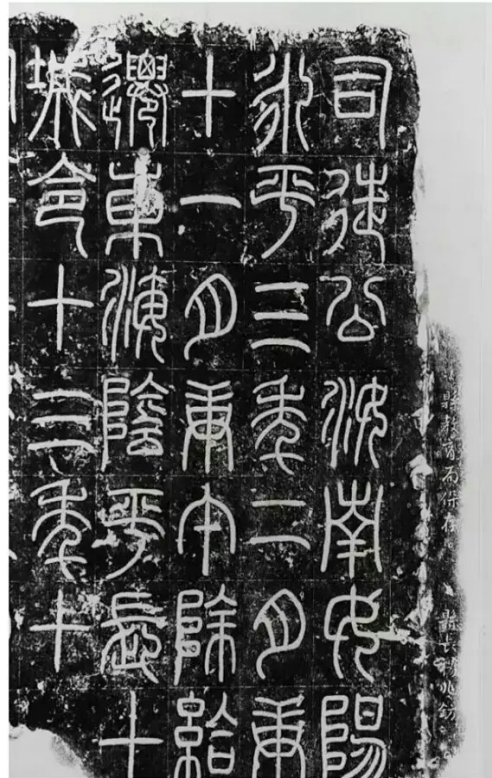 縣教育局保存
司徒公汝南女陽
永平三年二月庚
十一月庚午除給
遷東海陰平長十
城令十三年十